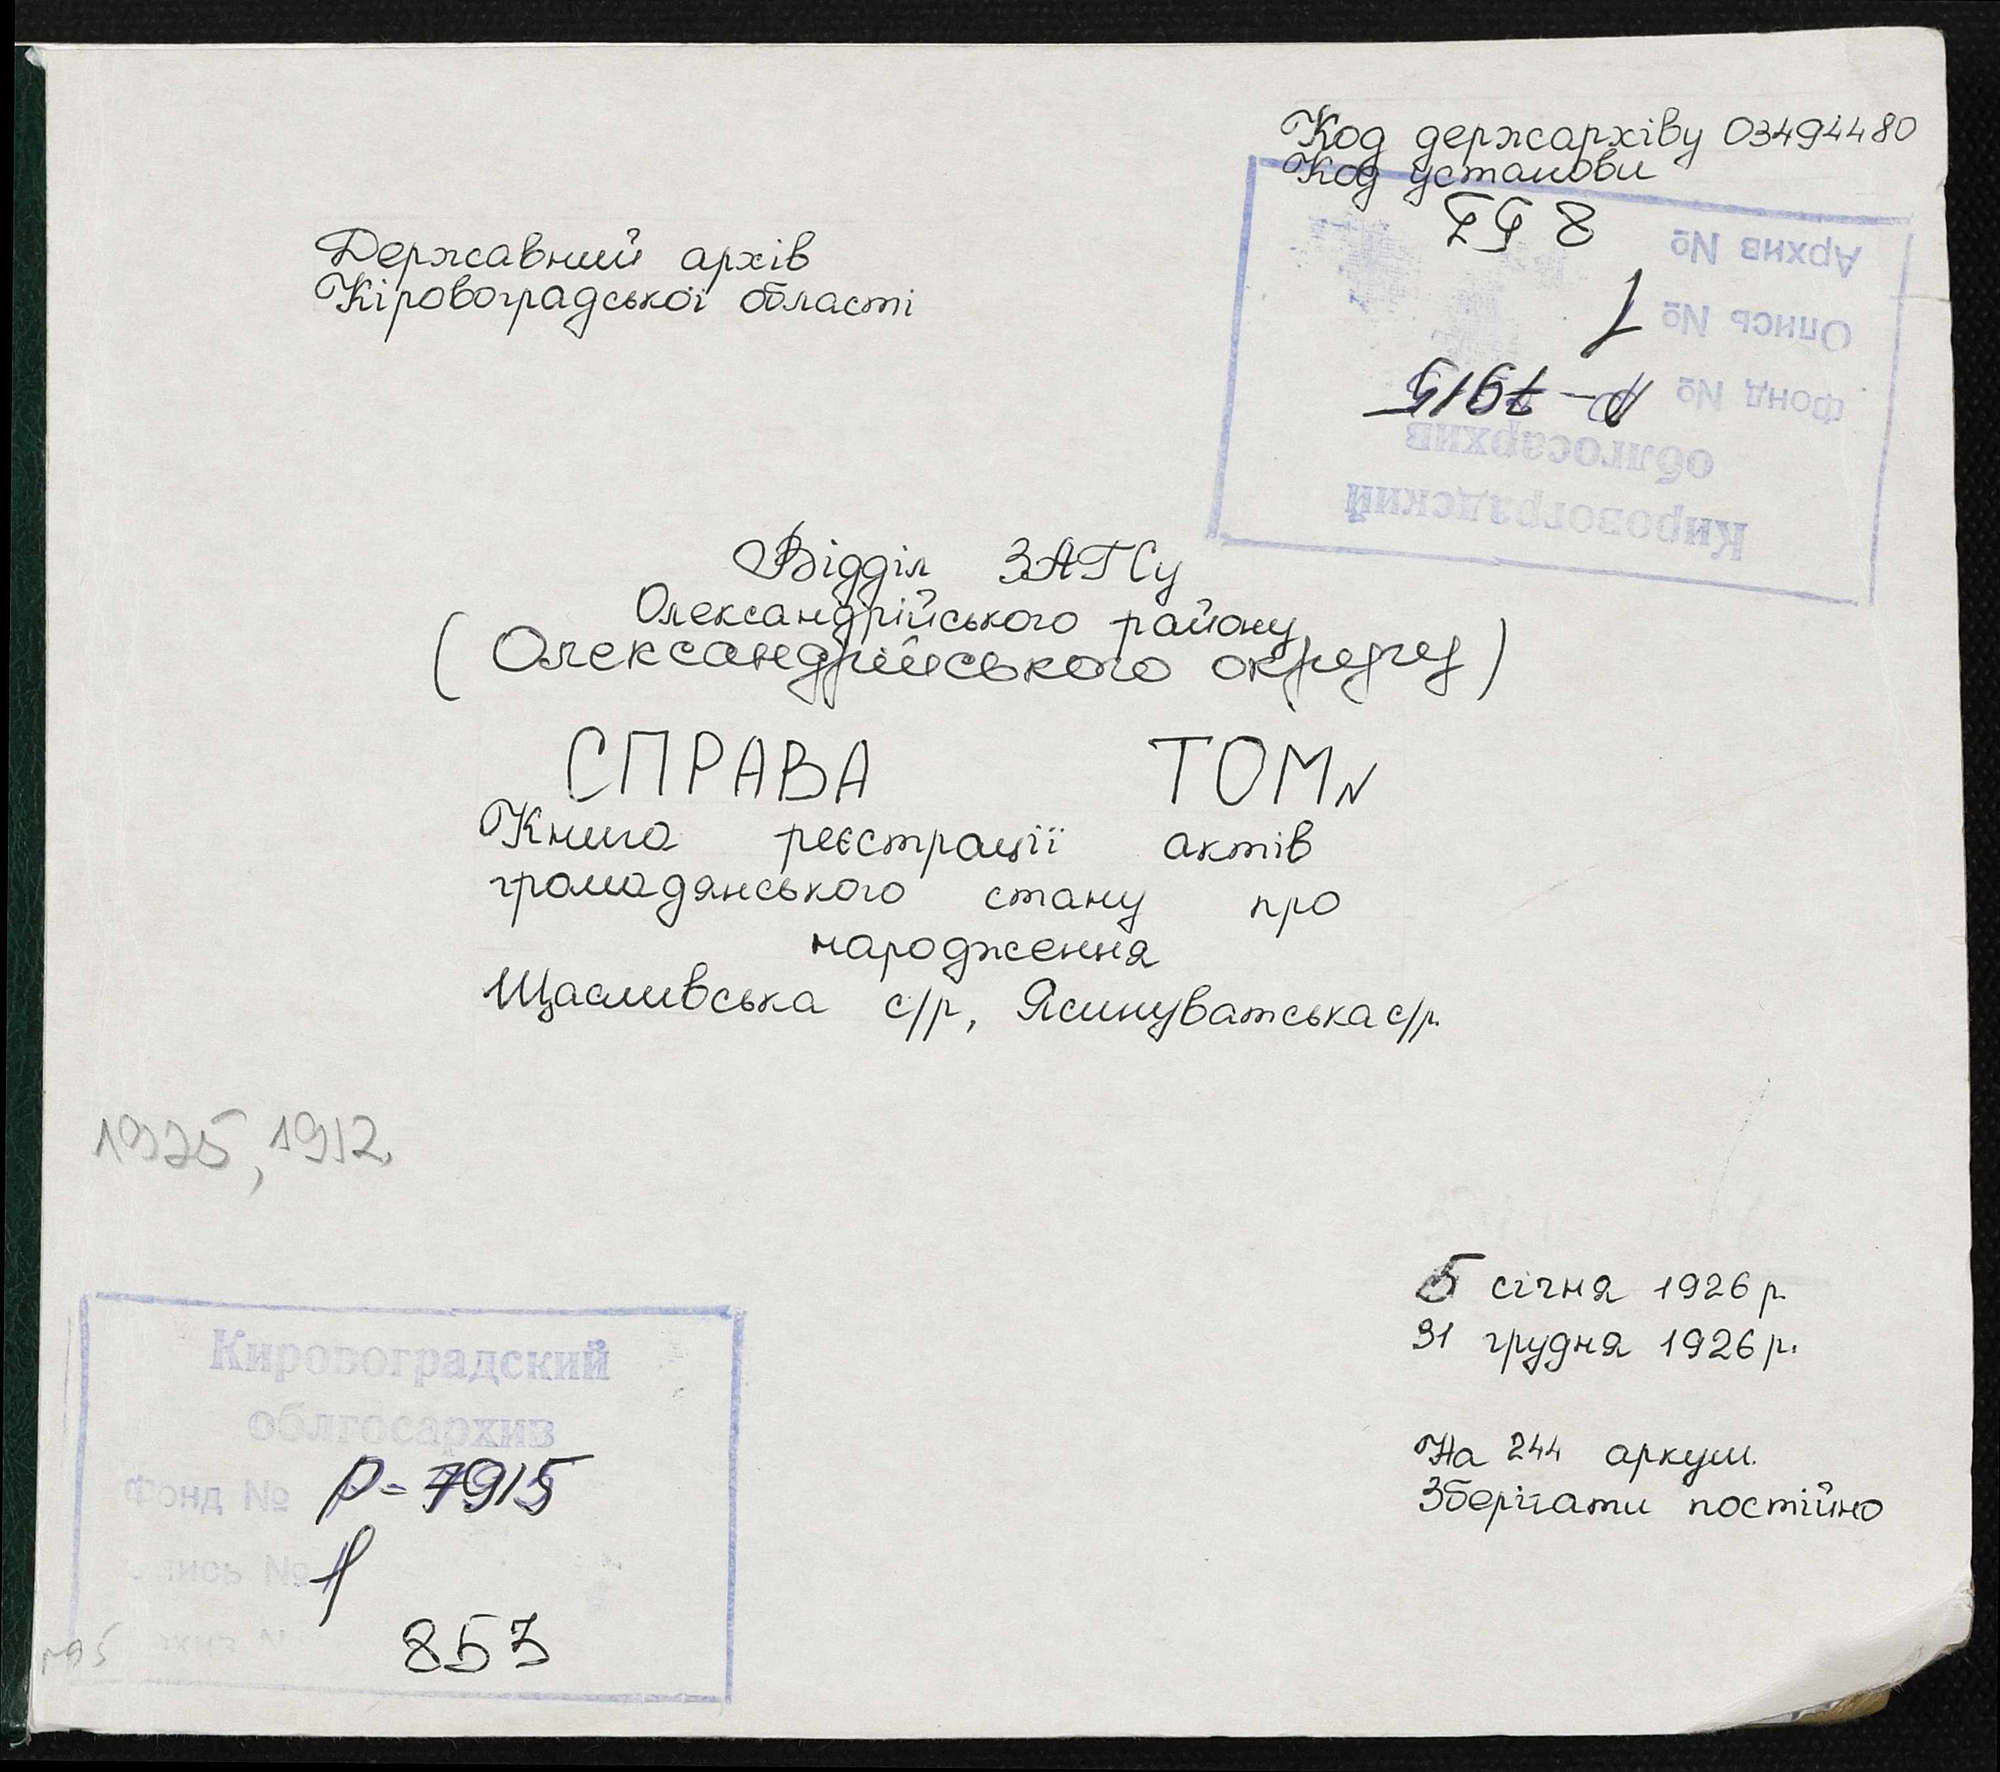 Код держархіву 03494480
Код установи
Державний архів
Кіровоградської області
Кировоградский
облгосархив
Фонд № Р-7915
Опись № 1
Архив № 853
Відділ ЗАГСу
Олександрійського району
(Олександрійського округу)
СПРАВА ТОМ N
Книга реєстрації актів
громадянського стану про
народження
Щасливська с/р, Ясинуватська с/р.
1925, 1912.
5 січня 1926 р.
31 грудня 1926 р.
На 244 аркуш.
Зберігати постійно
Кировоградский
облгосархив
Фонд № Р-7915
Опись № 1
853